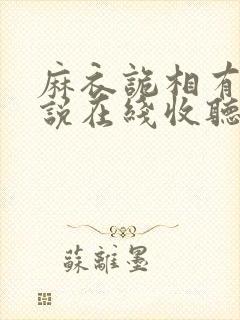 麻衣詭相有
説在綫收聽
蘇離墨